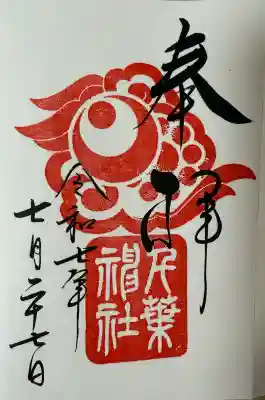 奉拝
片葉
神社
令和七年
七月二十七日